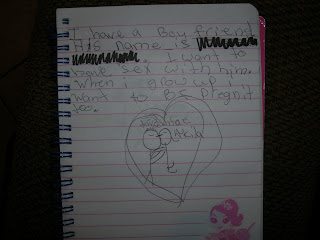 I have a Boy friend
His name is
I want to
have sex with him.
When i grow up i
want to BE pregnit
too.